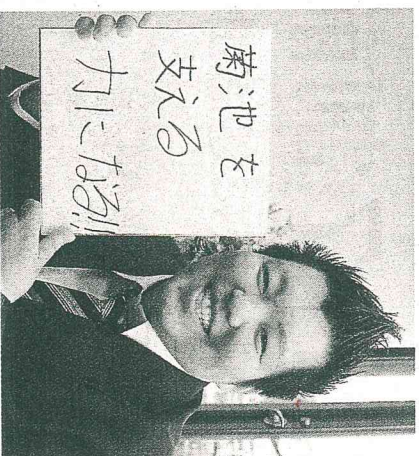 菊池を
支える
力になる!!